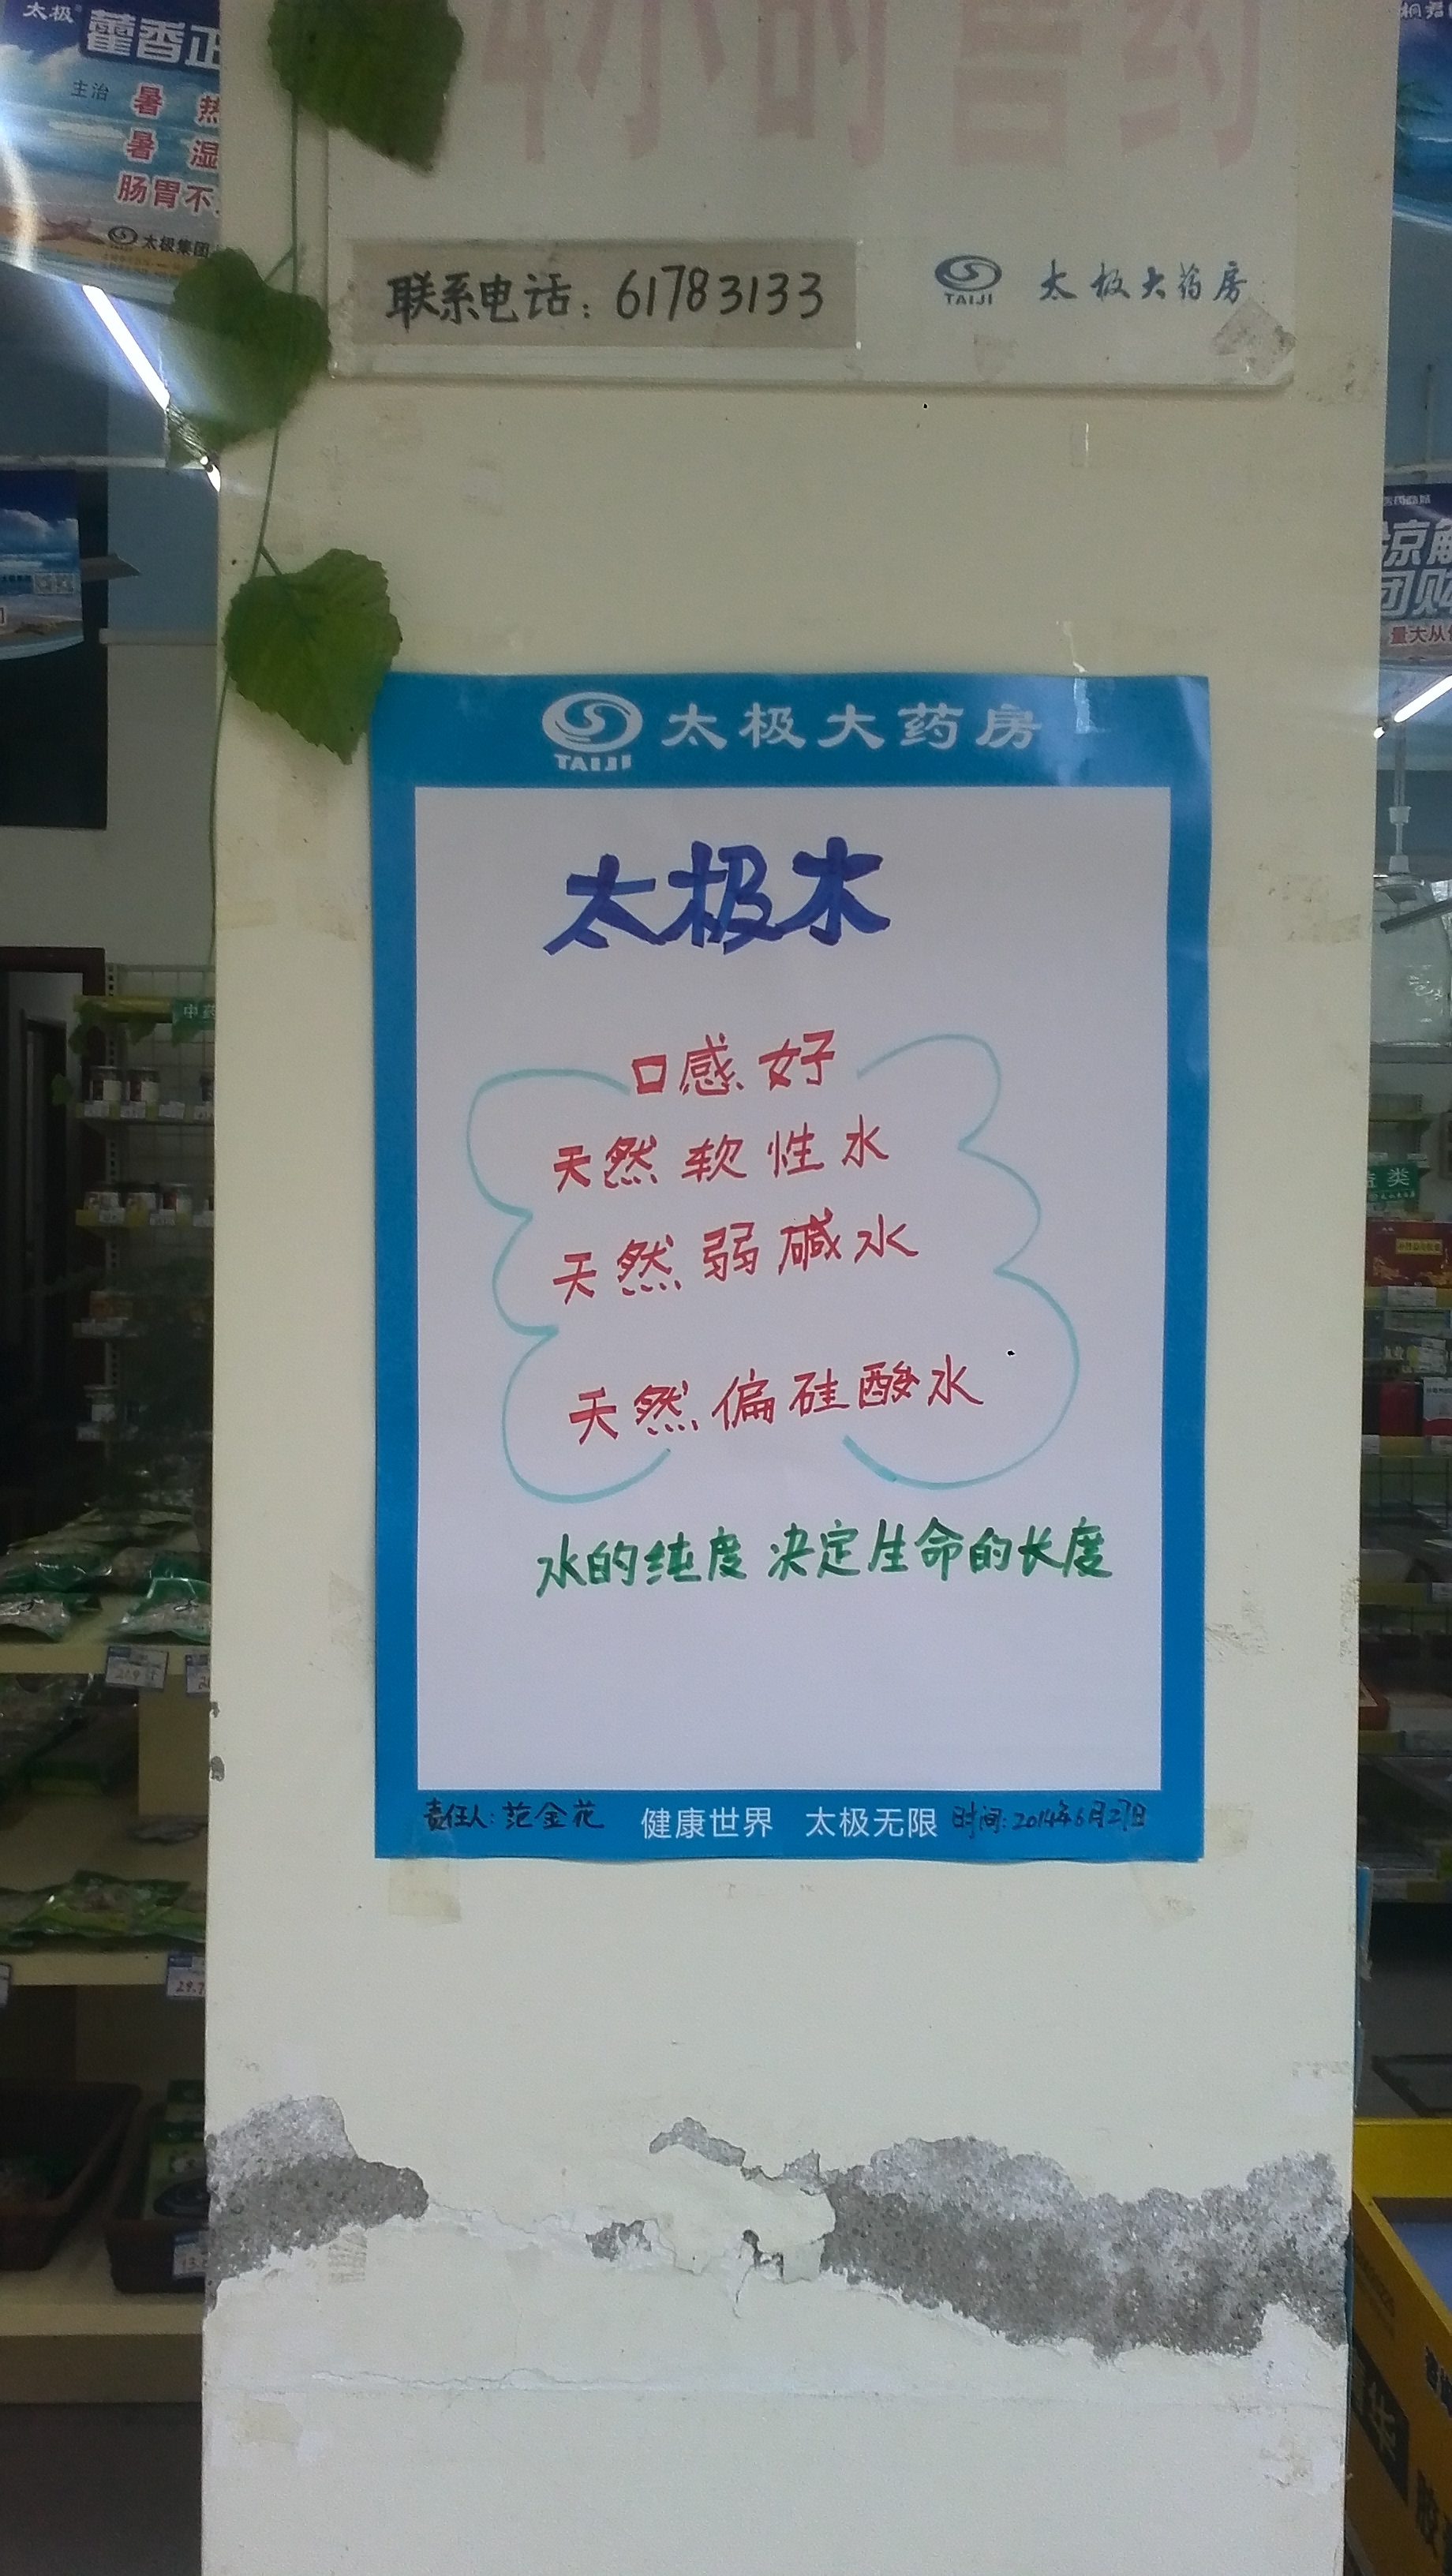 太极
藿香正
主治 暑 热
暑 湿
肠胃不
太极集团
4小时售药
联系电话：61783133
TAIJI 太极大药房
TAIJI 太极大药房
太极水
口感好
天然软性水
天然弱碱水
天然偏硅酸水
水的纯度 决定生命的长度
责任人：范金花 健康世界 太极无限 时间：2014年6月27日
中药
凉解
团购
量大从
益类
29.7